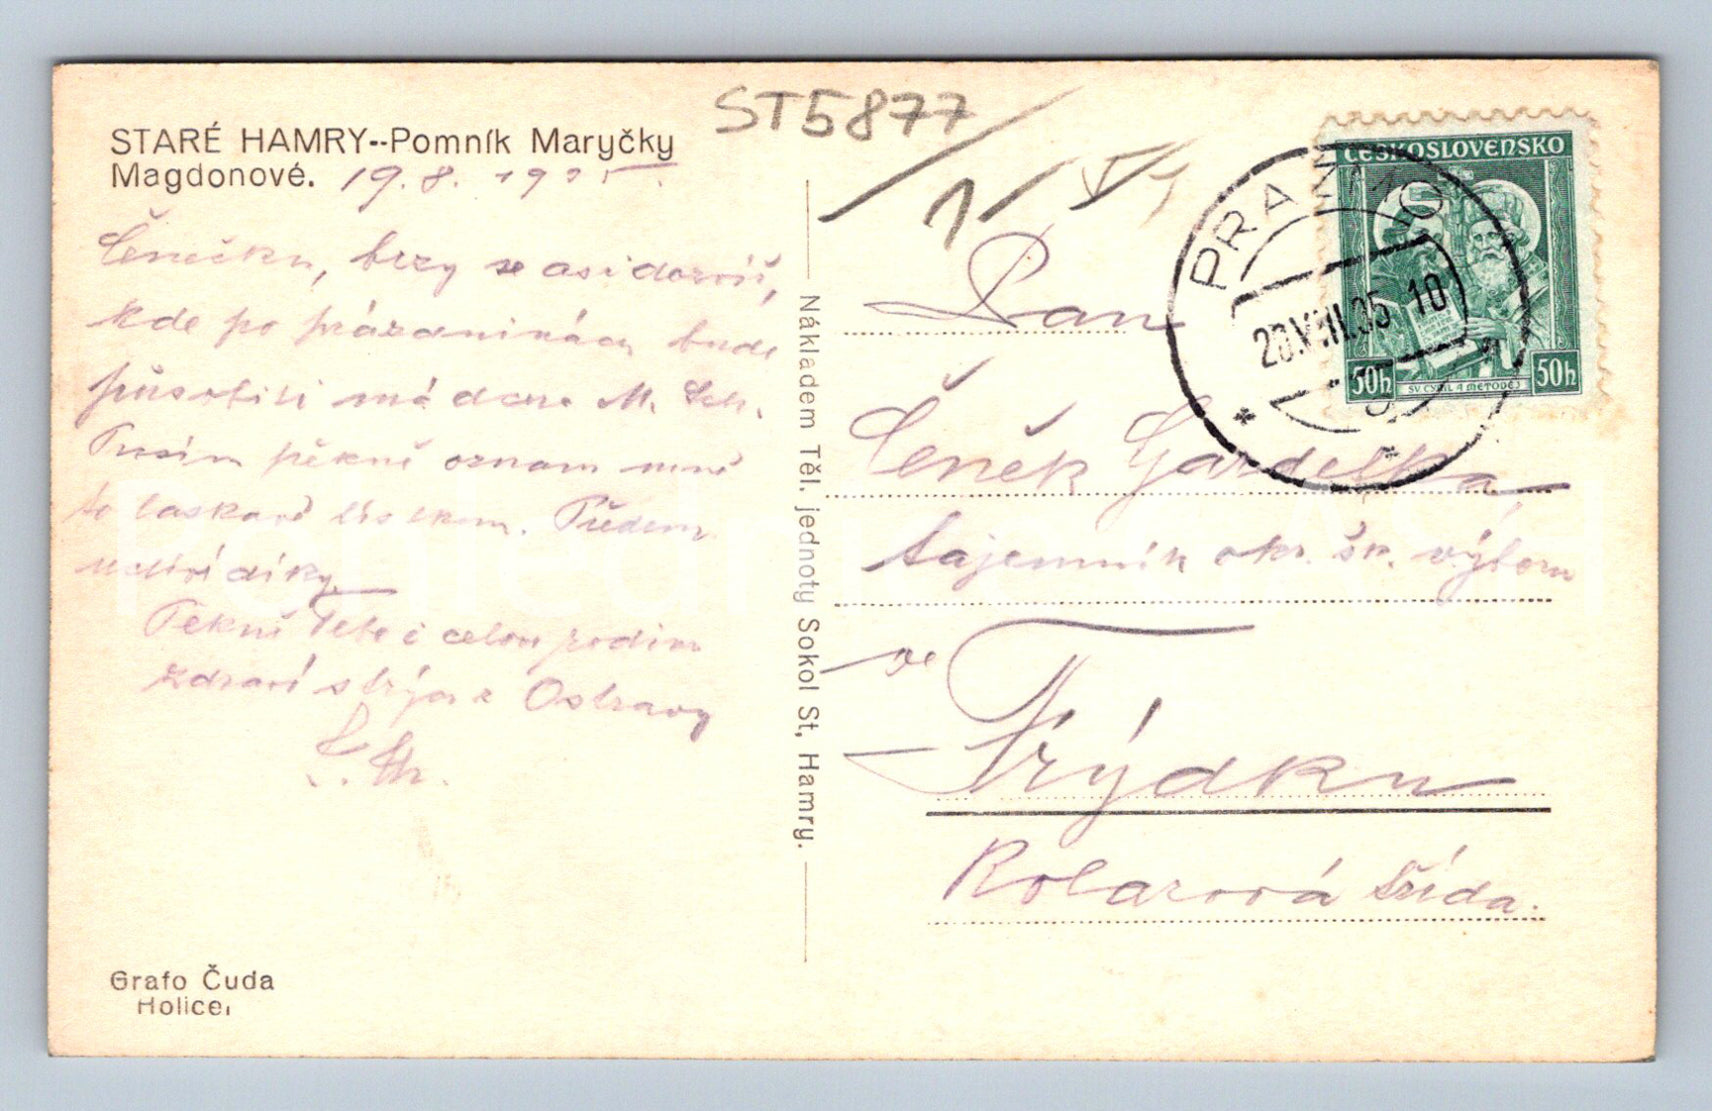 ST5877
STARÉ HAMRY--Pomník Maryčky
Magdonové. 19.8. 1935.
Čenečku, brzy se asi dozvíš,
kde po prázdninách bude
působiti má dcera M. Sch.
Prosím pěkně oznam mně
to laskavě lístkem. Předem
vřelé díky.
Pěkně Tebe i celou rodinu
zdraví strýc z Ostravy
Pan
Čeněk Gardelka
tajemník okr. šk. výboru
ve
Frýdku
Kolarová třída.
Nákladem Těl. jednoty Sokol St, Hamry.
Grafo Čuda
Holice,
ČESKOSLOVENSKO
50h
SV. CYRIL A METODĚJ
50h
PRAŽMO
20.VIII.35-10
Pohlednice